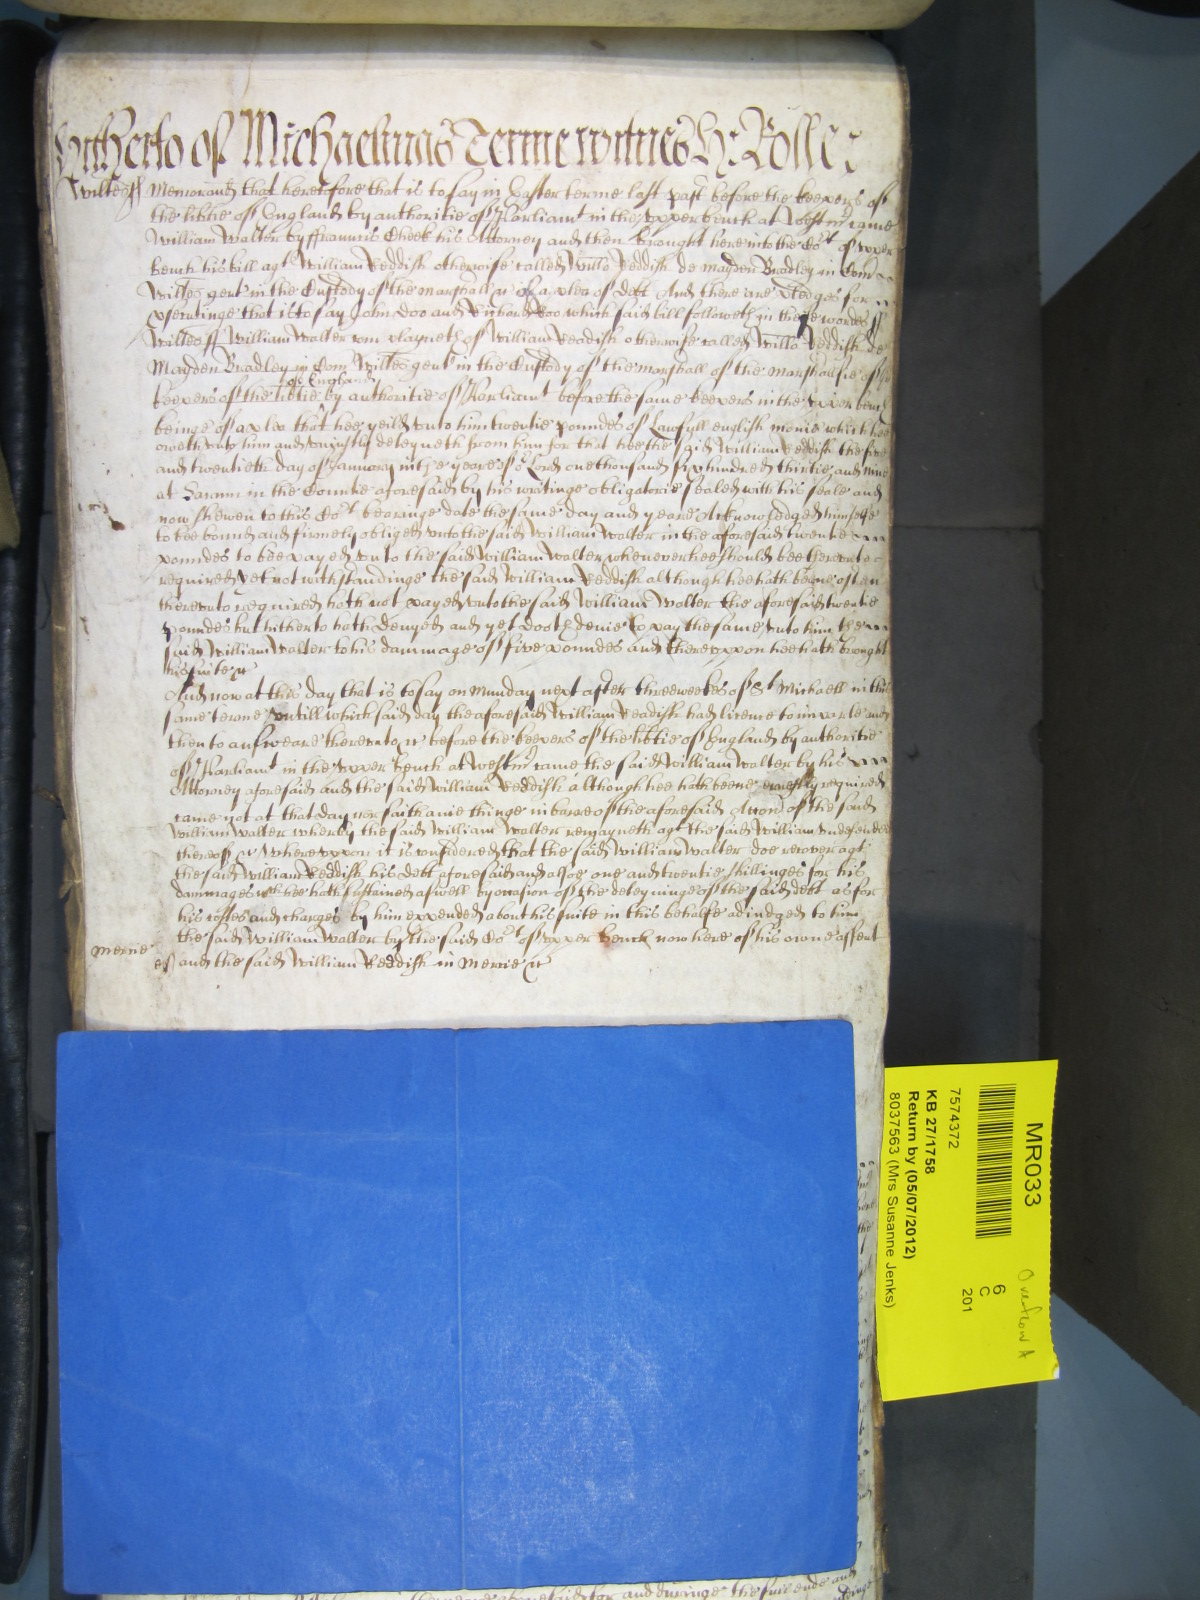 Hitherto of Michaelmas Terme witnes H: Rolle :
Wiltes ss Memorand that heretofore that is to say in Easter terme last past before the keepers of
the libtie of England by authoritie of Parliamt in the upper bench at Westmr came
William Walter by ffrauncis Cheek his Attorney and then brought here into the Cort of upper
bench his bill agt William Reddish otherwise called Willo Reddish de Mayden Bradley in Com
Wiltes gent in the Custody of the marshall &c of a plea of debt And there are pledges for
psecutinge that is to say John Doo and Richard Roo which said bill followeth in these wordes ss
Wiltes ss William Walter com playneth of William Reddish otherwise called Willo Reddish de
Mayden Bradley in Com Wiltes gent in the Custody of the marshall of the marshalsie of the
of England
keepers of the libtie by authoritie of Parliamt before the same keepers in the upper bench
beinge of a plea that hee yeild unto him twentie poundes of Lawfull english monie which hee
oweth unto him and uniustly deteyneth from him for that hee the said William Reddish the five
and twentieth day of January in the yeare of or Lord one thousand six hundred thirtie and nine
at Sarum in the Countie aforesaid by his writinge obligatorie sealed with his seale and
now shewen to this Cort bearinge date the same day and yeare Acknowledged himselfe
to bee bound and firmely obliged unto the said William Walter in the aforesaid twentie
poundes to bee payed unto the said William Walter when ever hee should bee thereunto
required Yet not withstandinge the said William Reddish although hee hath beene often
thereunto required hath not payed unto the said William Walter the aforesaid twentie
poundes but hitherto hath denyed and yet doth denie to pay the same unto him the
said William Walter to his dammage of five poundes and thereuppon hee hath brought
his suite &c
And now at this day that is to say on Munday next after three weekes of St Michaell in this
same terme untill which said day the aforesaid William Reddish had licence to imparle and
then to answeare thereunto &c before the keepers of the libtie of England by authoritie
of Parliamt in the upper bench at Westmr came the said William Walter by his
Attorney aforesaid and the said William Reddish although hee hath beene required
came not at that day nor saith anie thinge in barre of the aforesaid Accon of the said
William Walter whereby the said William Walter remayneth agt the said William undefended
thereof &c whereuppon it is considered that the said William Walter doe recover agt
the said William Reddish his debt aforesaid and alsoe one and twentie shillinges for his
dammages wch hee hath sustained aswell by occasion of the deteyninge of the said debt as for
his costes and charges by him expended about his suite in this behalfe adiudged to him
the said William Walter by the said Cort of upper bench now here of his owne assent
Mercie
&c and the said William Reddish in Mercie &c
and duringe the full ende and
MR033
7574372
KB 27/1758
Return by (05/07/2012)
8037563 (Mrs Susanne Jenks)
6
C
201
Overflow A